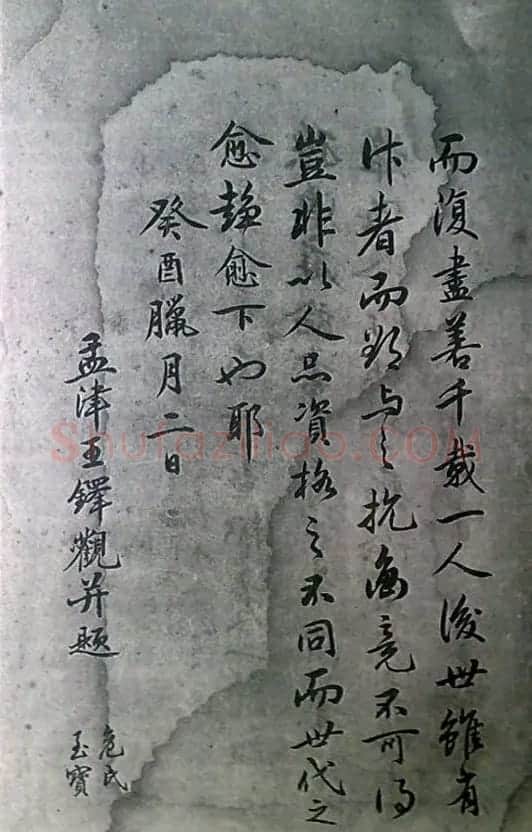 而復盡善千載一人後世雖有
作者而欲与之抗衡竟不可得
豈非以人品資格之不同而世代之
愈趨愈下也耶
癸酉臘月二日
孟津王鐸觀并題
危氏
至寶
Shufaziliao.COM